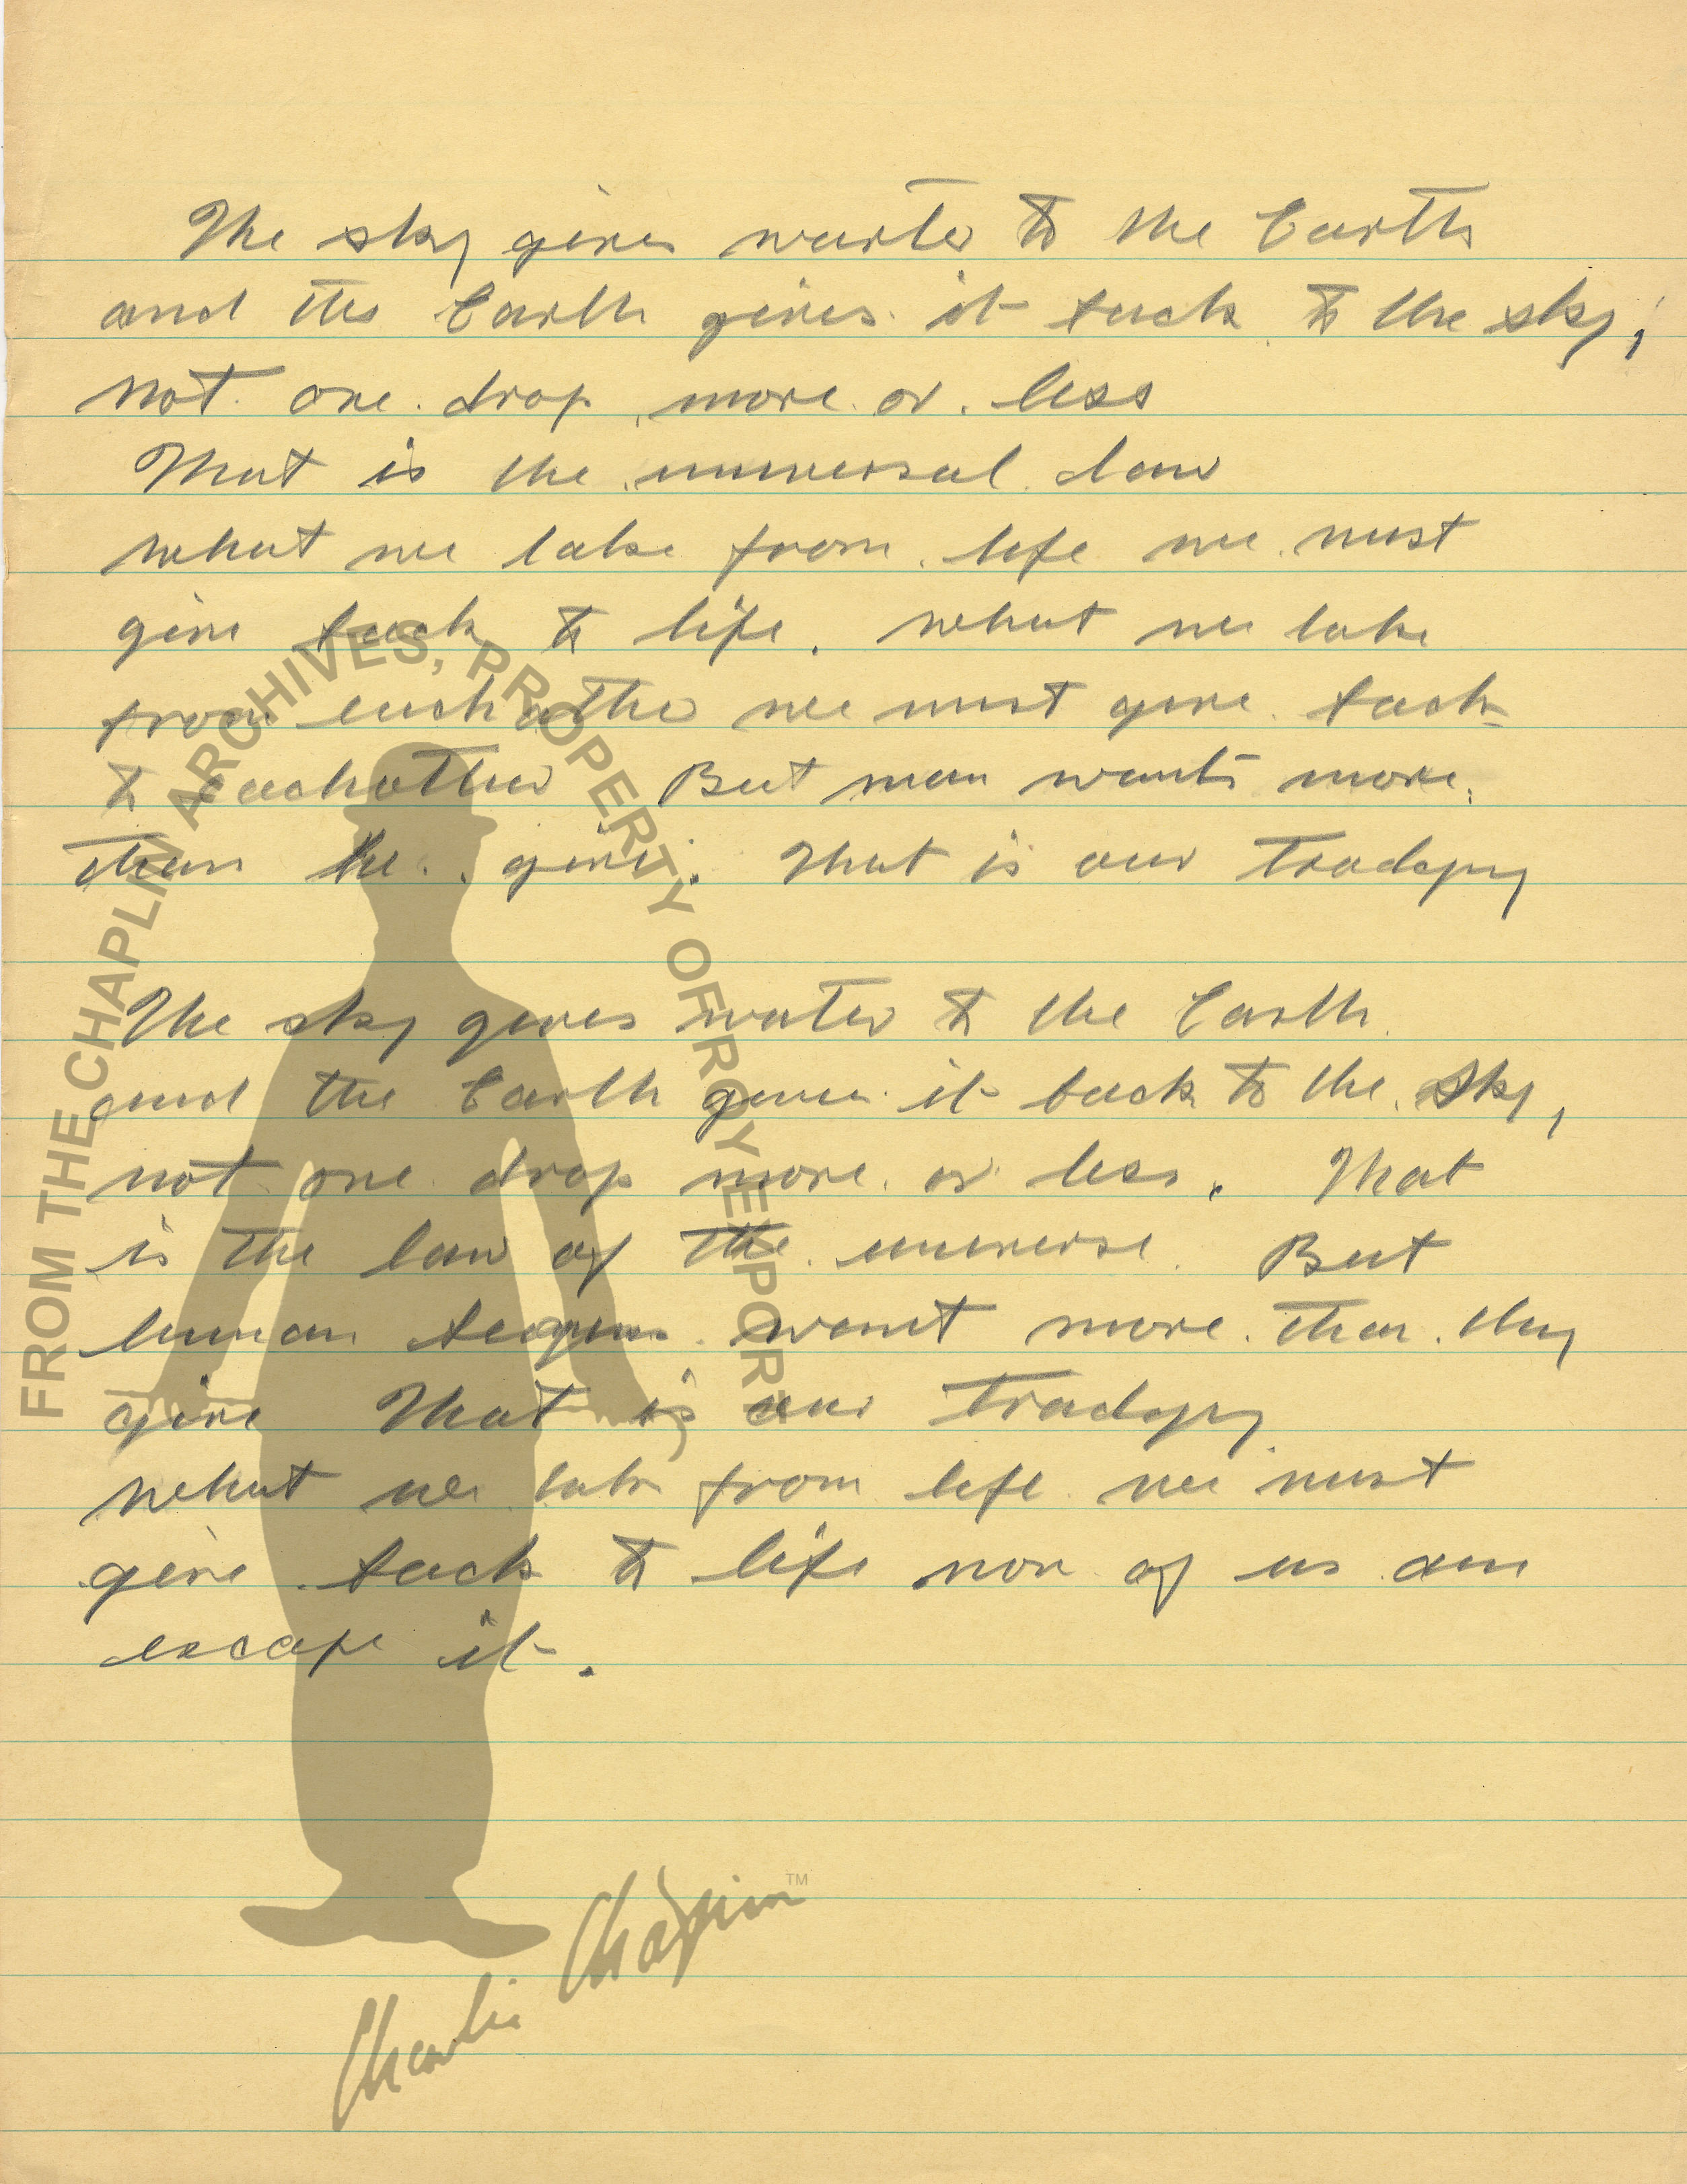 The sky gives warter to the Earth
and the Earth gives it back to the sky,
not one drop more or less
That is the universal law
what we take from life we must
give back to life. what we take
from eachother we must give back
to eachother But man wants more
than he gives. That is our tradgey
The sky gives water to the Earth
and the Earth gives it back to the sky,
not one drop more or less. That
is the law of the universe But
human beigns want more than they
give That is our tradgey
what we take from life we must
give back to life non of us can
escape it.
FROM THE CHAPLIN ARCHIVES, PROPERTY OF ROY EXPORT
Charlie Chaplin TM